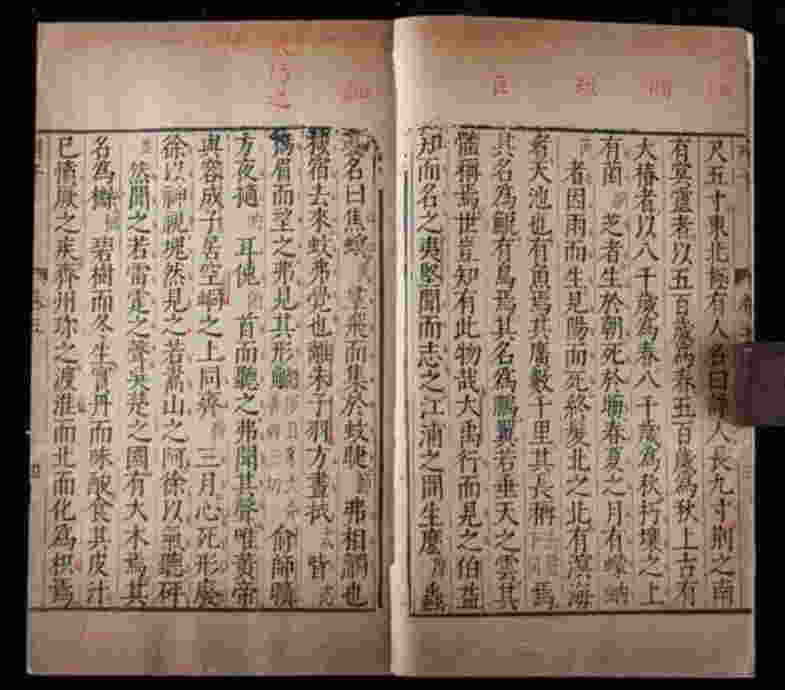 尺五寸東北極有人名曰諍人長九寸荆之南
有冥靈者以五百歲為春五百歲為秋上古有
大椿者以八千歲為春八千歲為秋朽壤之上
有菌芝者生於朝死於晦春夏之月有蠓蚋
者因雨而生見陽而死終髮北之北有溟海
者天池也有魚焉其廣數千里其長稱焉
其名為鯤有鳥焉其名為鵬翼若垂天之雲其
體稱焉世豈知有此物哉大禹行而見之伯益
知而名之夷堅聞而志之江浦之間生麼蟲
其名曰焦螟羣飛而集於蚊睫弗相觸也
栖宿去來蚊弗覺也離朱子羽方晝拭眥
揚眉而望之弗見其形䚦俞師曠
方夜擿耳俛首而聽之弗聞其聲唯黃帝
與容成子居空峒之上同齊三月心死形廢
徐以神視塊然見之若嵩山之阿徐以氣聽砰
然聞之若雷霆之聲吳楚之國有大木焉其
名為櫾碧樹而冬生實丹而味酸食其皮汁
已憤厥之疾齊州珍之渡淮而北而化為枳焉